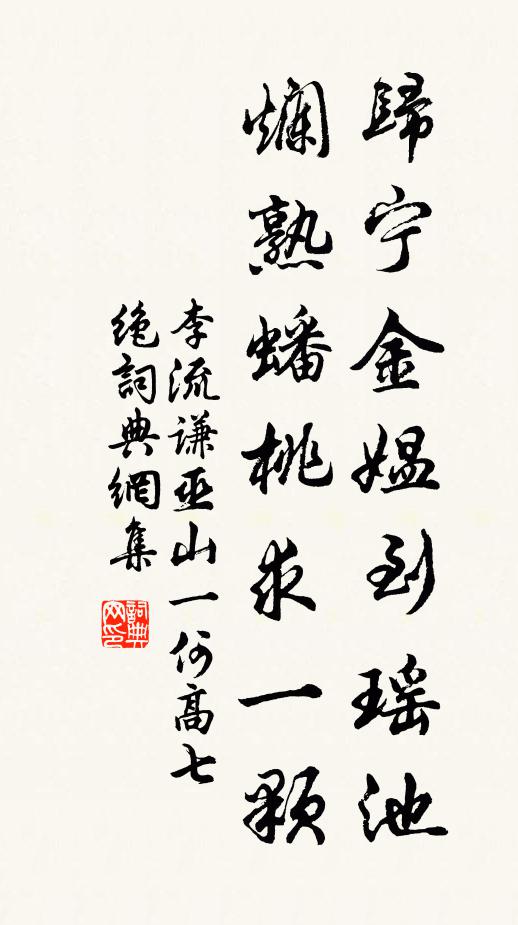 歸宁金媼到瑶池
爛熟蟠桃求一顆
李流謙巫山一何高七
絶詞典網集
詞典网印